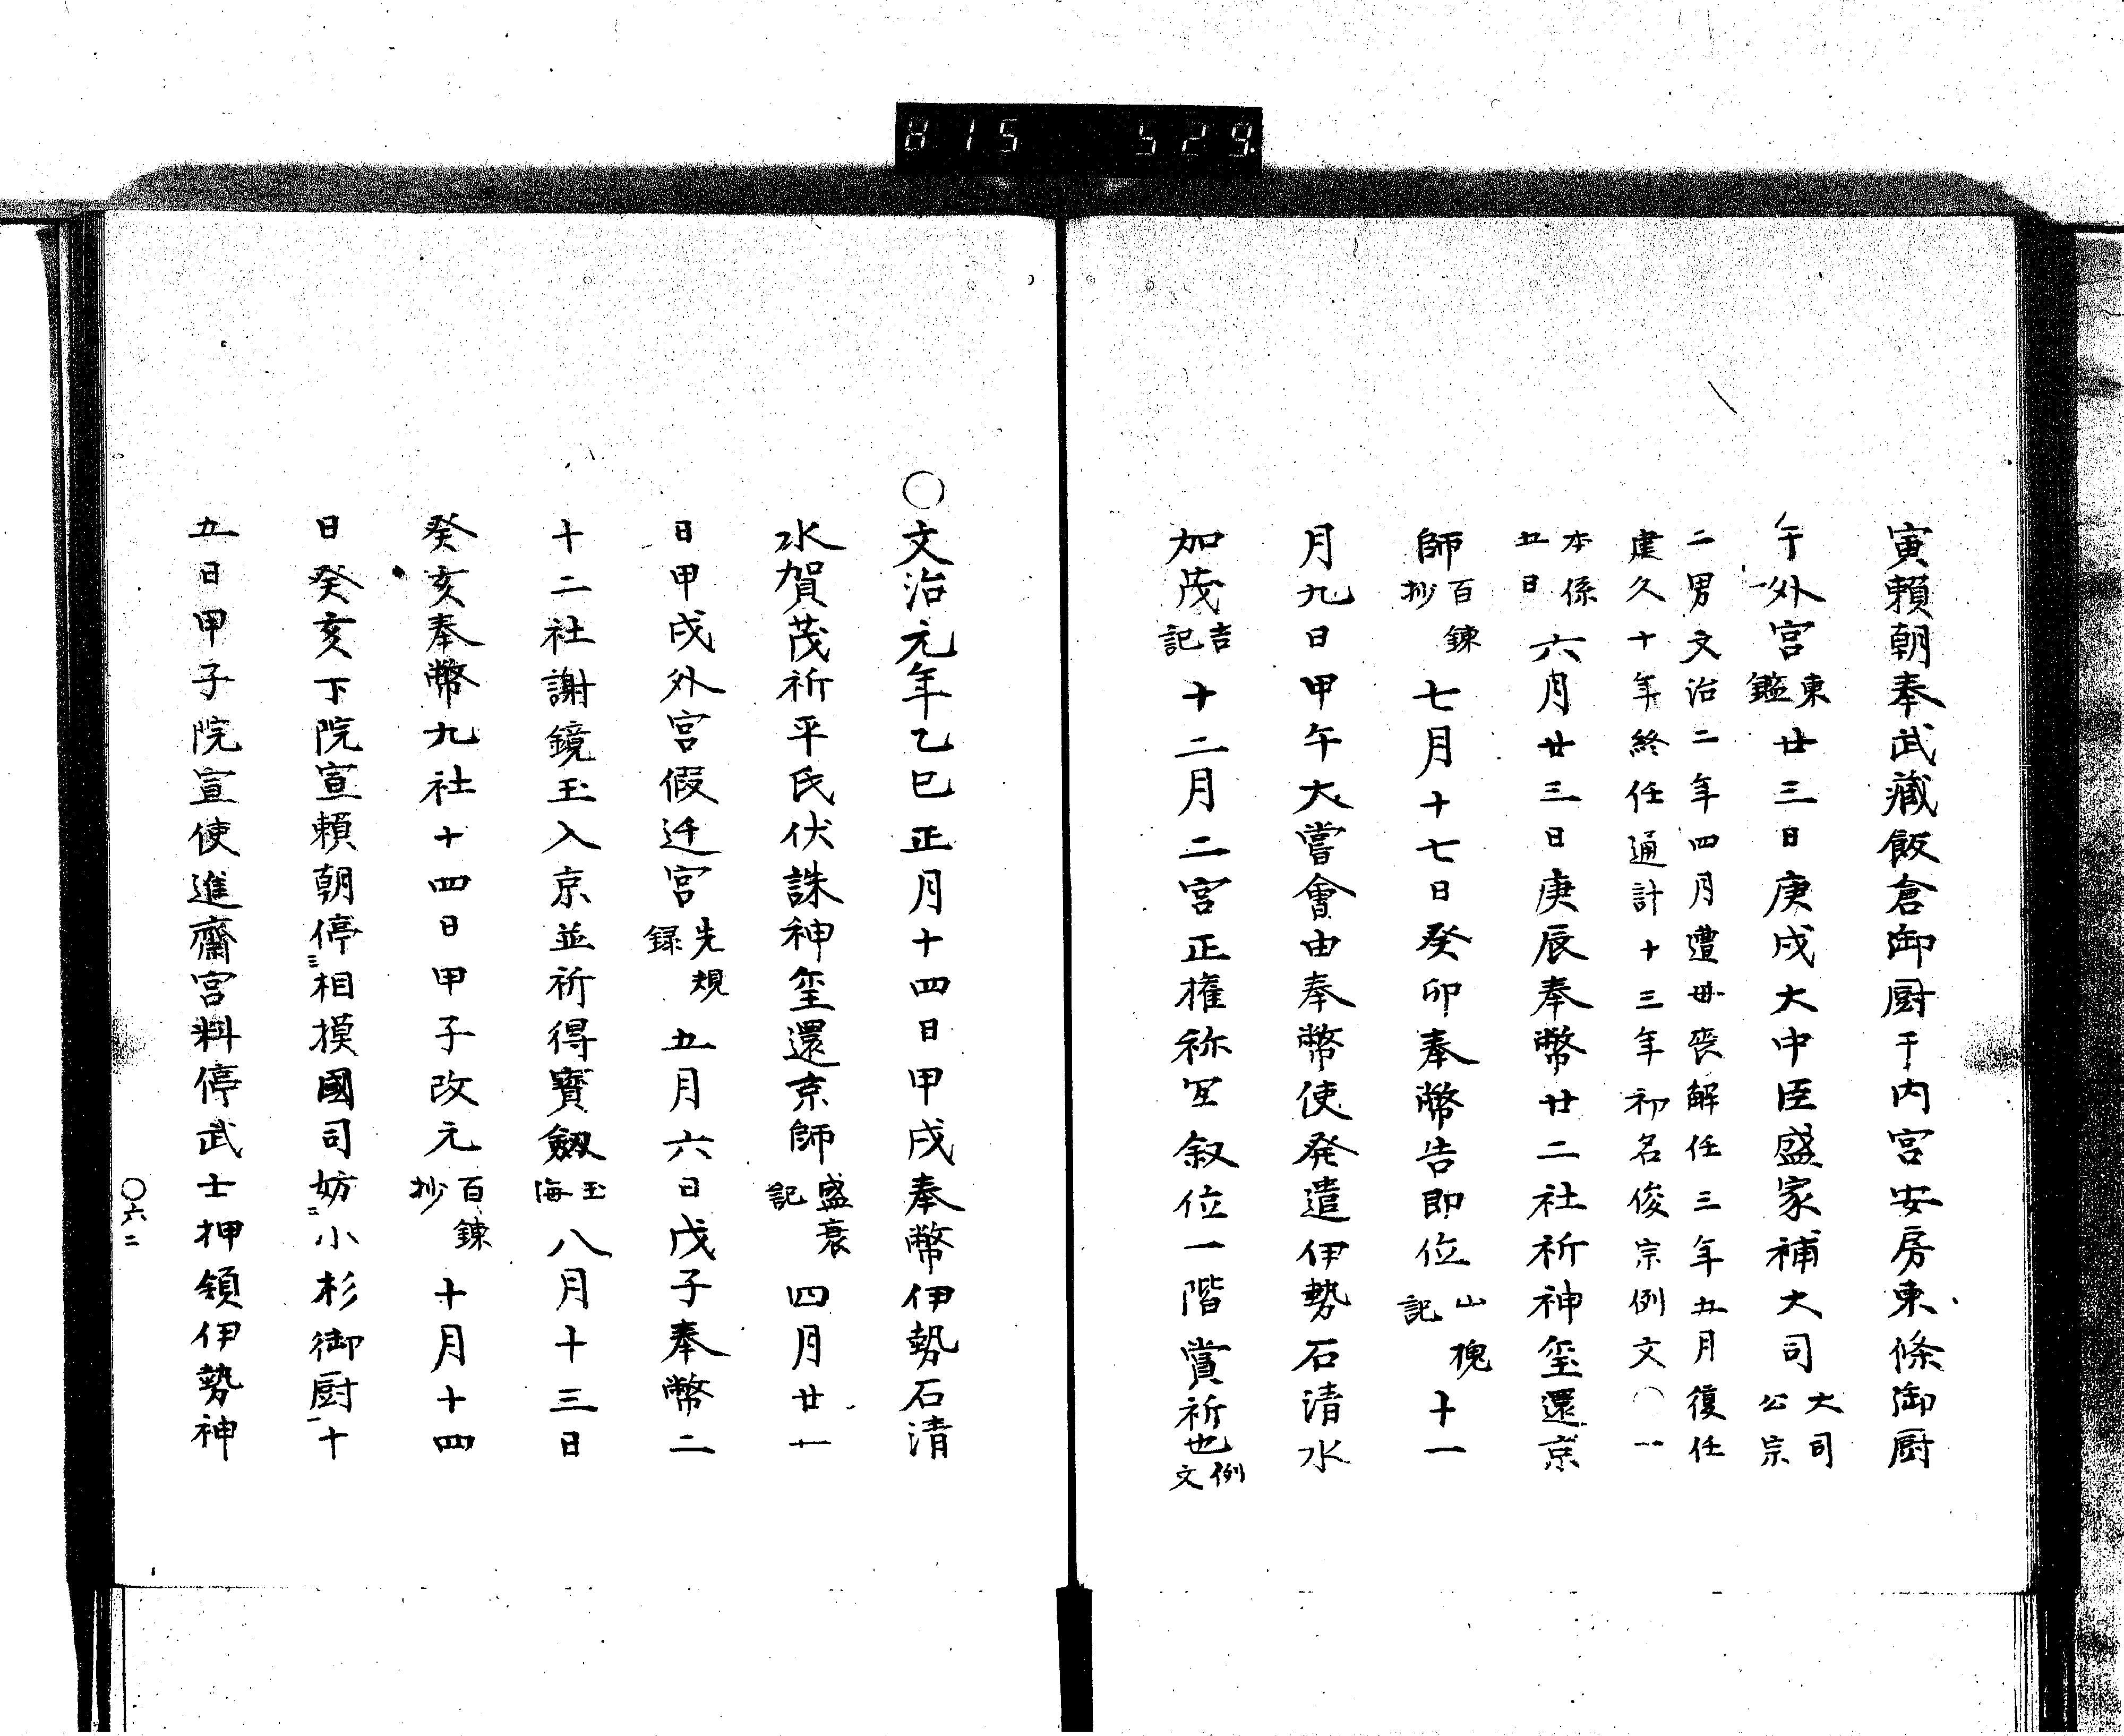 815 529
寅賴朝奉武藏飯倉御厨于内宮安房東條御厨
午外宮東鑑廿三日庚戌大中臣盛家補大司大司公宗
二男文治二年四月遭毋喪解任三年五月復任
建久十年終任通計十三年初名俊宗例文〇一
本係五日六月廿三日庚辰奉幣廿二社祈神璽還京
師百錬抄七月十七日癸卯奉幣告即位山槐記十一
月九日甲午大嘗會由奉幣使発遣伊勢石清水
加茂吉記十二月二宮正權称宜叙位一階賞祈也例文
〇文治元年乙巳正月十四日甲戌奉幣伊勢石清
水賀茂祈平氏伏誅神璽還京師盛衰記四月廿一
日甲戌外宮假迁宮先規録五月六日戊子奉幣二
十二社謝鏡玉入京並祈得寳劔玉海八月十三日
癸亥奉幣九社十四日甲子改元百錬抄十月十四
日癸亥下院宣賴朝停三相摸國司妨二小杉御厨一十
五日甲子院宣使進齋宮料停武士押領伊勢神
〇六二